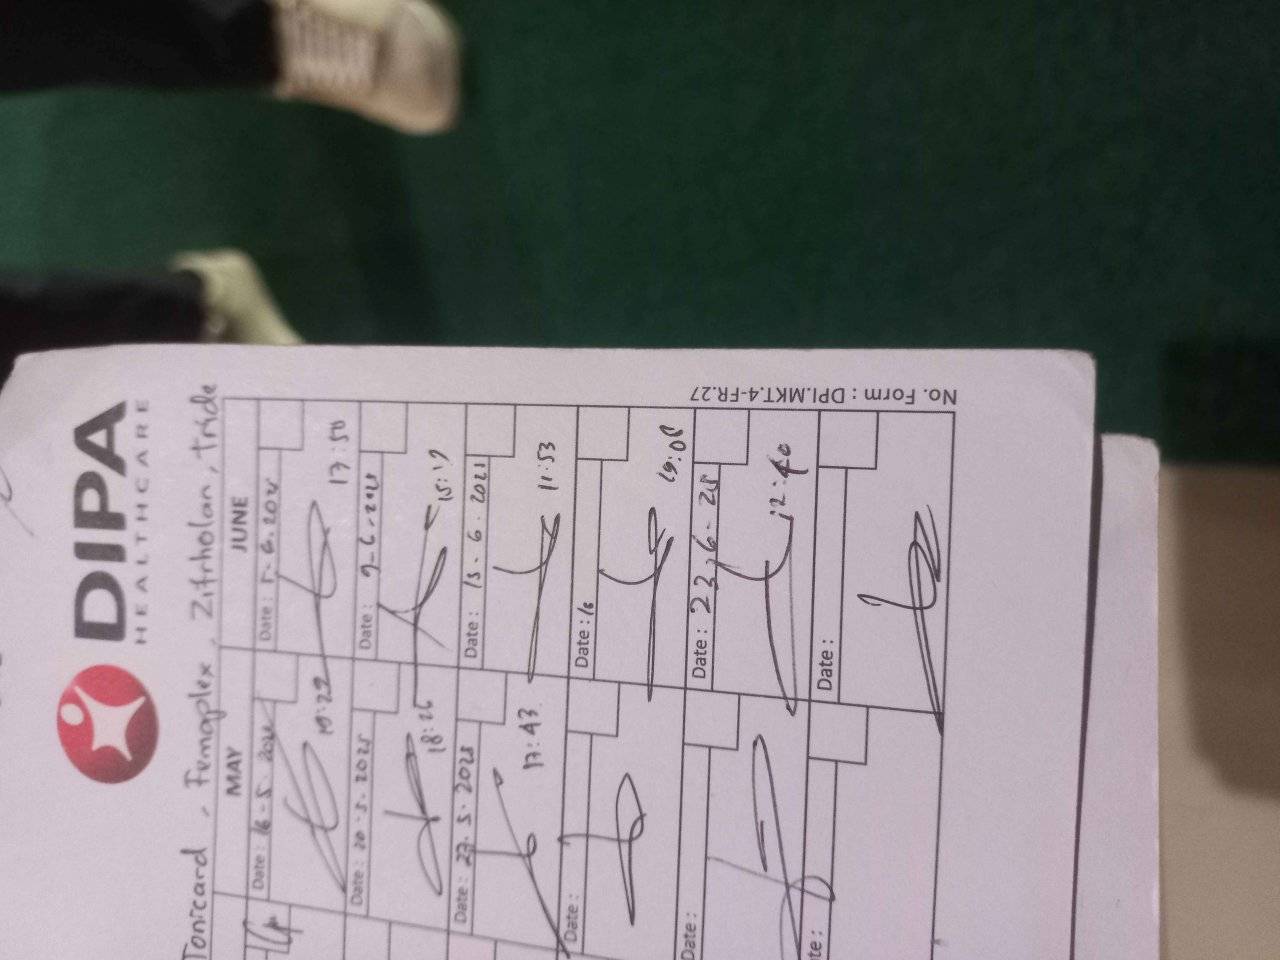 DIPA
HEALTHCARE
Tonicard, Femaplex, Zitrholan, tride
MAY
JUNE
Date: 16-5
19:29
Date:
17:50
Date: 20-5-2025
18:26
Date: 9-6-2025
15:19
Date: 27.5.2025
17:43
Date: 13.6.2025
11:53
Date:
Date: 16
19:08
Date:
Date: 23-6-25
12:40
te:
Date:
No. Form : DPI.MKT.4-FR.27